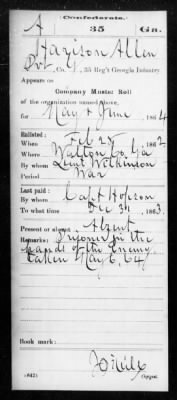 Confederate.
A 35 Ga.
Harrison Allen
Pvt, Co. G, 35 Reg't Georgia Infantry.
Appears on
Company Muster Roll
of the organization named above,
for May & June, 1864
Enlisted:
When Feb 25, 1862
Where Walton Co. Ga
By whom Lieut Wilkinson
Period War
Last paid:
By whom Capt
To what time Dec 31, 1863.
Present or absent Absent
Remarks: Prisoner in the
hands of the Enemy.
taken May 6, 64
Book mark:
(642)
Copyist.